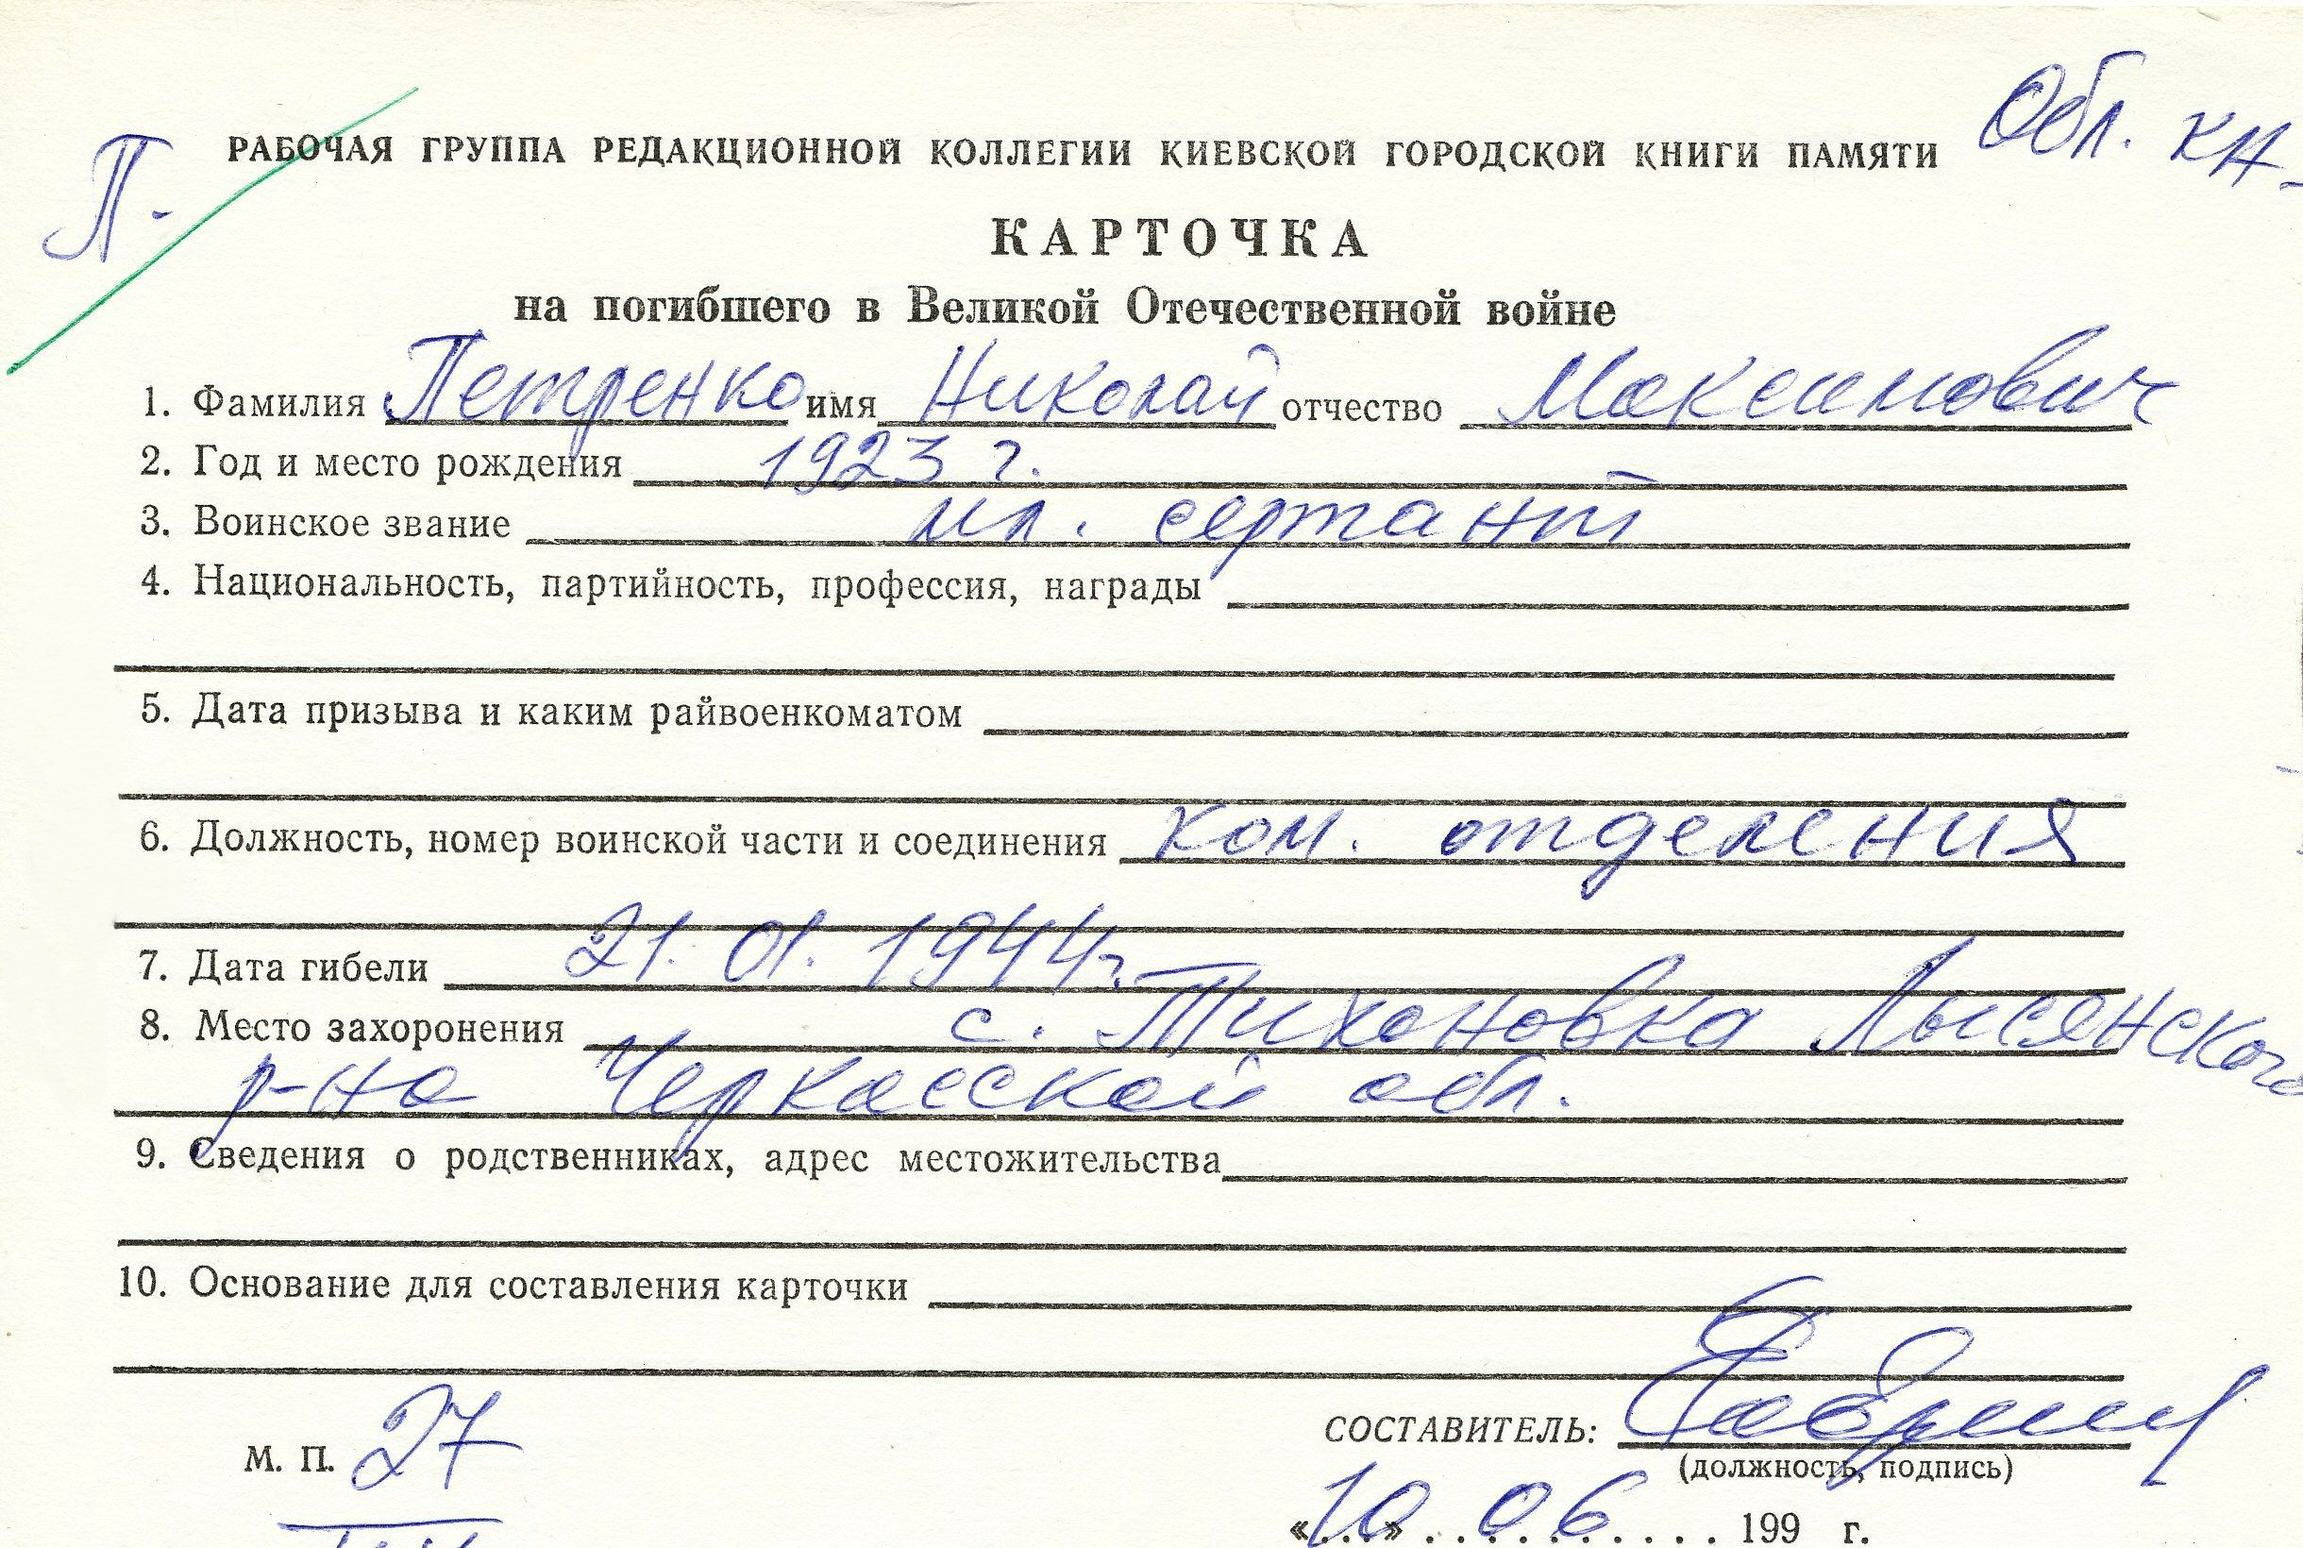 Обл. кн.
П.
РАБОЧАЯ ГРУППА РЕДАКЦИОННОЙ КОЛЛЕГИИ КИЕВСКОЙ ГОРОДСКОЙ КНИГИ ПАМЯТИ
КАРТОЧКА
на погибшего в Великой Отечественной войне
1. Фамилия Петренко имя Николай отчество Максимович
2. Год и место рождения 1923 г.
3. Воинское звание мл. сержант
4. Национальность, партийность, профессия, награды
5. Дата призыва и каким райвоенкоматом
6. Должность, номер воинской части и соединения ком. отделения
7. Дата гибели 21. 01. 1944г.
8. Место захоронения с. Тихоновка Лысянского
р-на Черкасской обл.
9. Сведения о родственниках, адрес местожительства
10. Основание для составления карточки
СОСТАВИТЕЛЬ:
М. П. 27
(должность, подпись)
«10» 06 199 г.